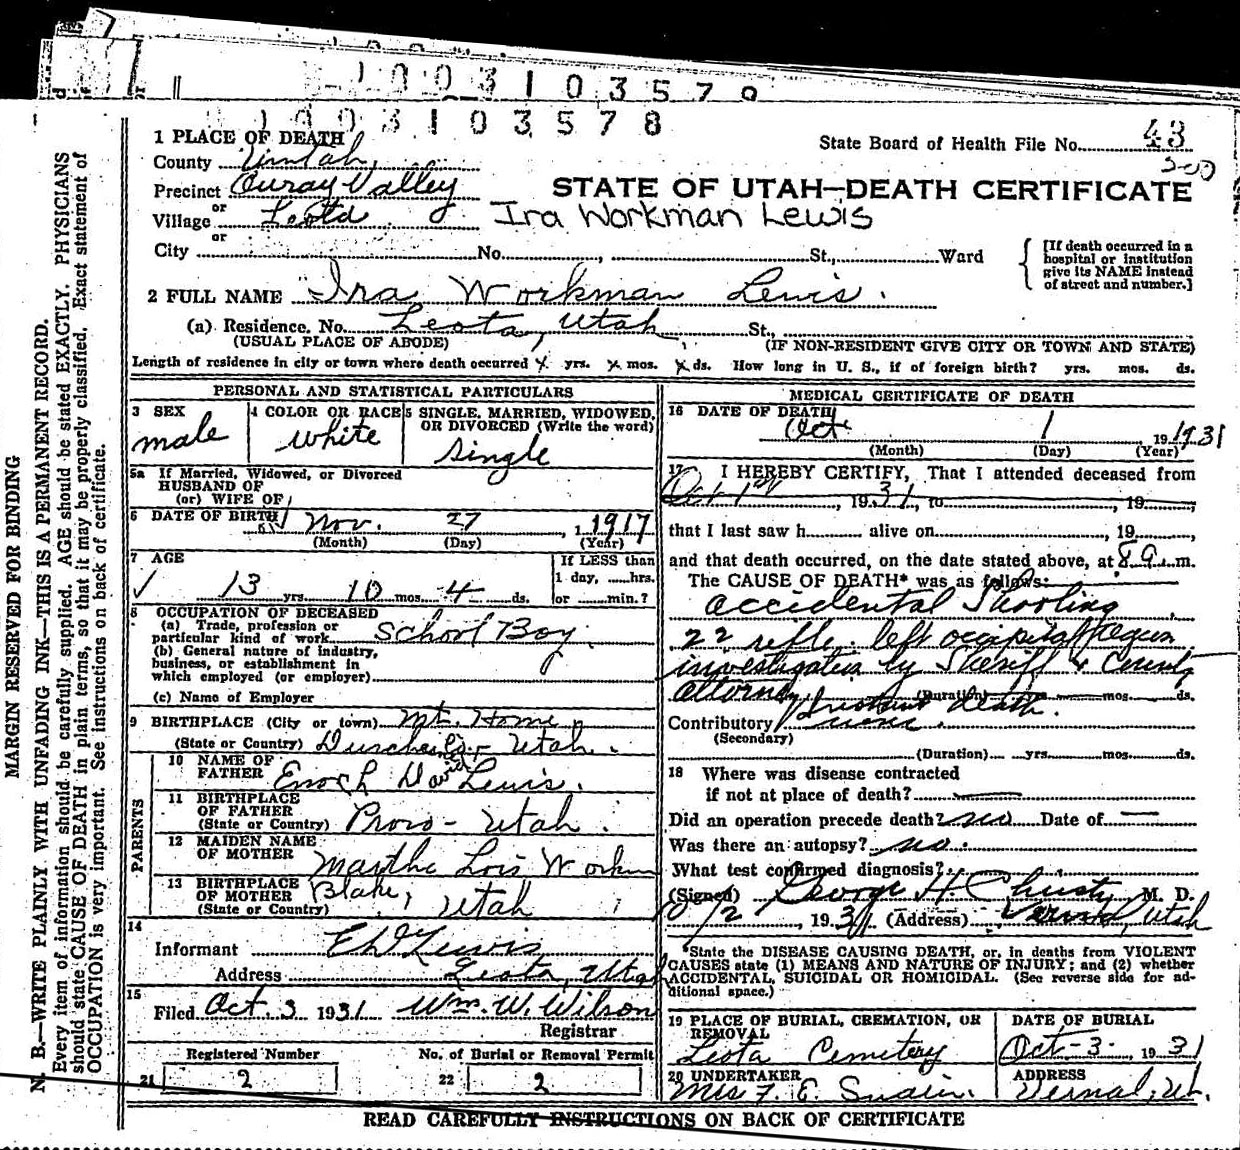 1003103579
1003103578
1 PLACE OF DEATH
State Board of Health File No. 43
County Uintah
200
Precinct Ouray Valley
STATE OF UTAH—DEATH CERTIFICATE
or
Village Leota
Ira Workman Lewis
or
City No. , St., Ward
[If death occurred in a hospital or institution give its NAME instead of street and number.]
2 FULL NAME Ira Workman Lewis.
(a) Residence. No. Leota, Utah St.,
(USUAL PLACE OF ABODE) (IF NON-RESIDENT GIVE CITY OR TOWN AND STATE)
Length of residence in city or town where death occurred x yrs. x mos. x ds. How long in U. S., if of foreign birth? yrs. mos. ds.
PERSONAL AND STATISTICAL PARTICULARS
3 SEX
male
4 COLOR OR RACE
white
5 SINGLE, MARRIED, WIDOWED, OR DIVORCED (Write the word)
Single
5a If Married, Widowed, or Divorced
HUSBAND OF
(or) WIFE OF
6 DATE OF BIRTH Nov. 27 1 1917
(Month) (Day) (Year)
7 AGE
13 yrs. 10 mos. 4 ds.
If LESS than
1 day, hrs.
or min.?
8 OCCUPATION OF DECEASED
(a) Trade, profession or
particular kind of work School Boy
(b) General nature of industry,
business, or establishment in
which employed (or employer)
(c) Name of Employer
9 BIRTHPLACE (City or town) Mt. Home
(State or Country) Duschesne Utah.
PARENTS
10 NAME OF
FATHER Enoch David Lewis.
11 BIRTHPLACE
OF FATHER
(State or Country) Provo - Utah.
12 MAIDEN NAME
OF MOTHER Martha Lois Workm
13 BIRTHPLACE
OF MOTHER Blake,
(State or Country) Utah
14
Informant E D Lewis
Address Leota, Utah
15
Filed Oct. 3 1931 Wm. W. Wilson
Registrar
Registered Number
21 2
No. of Burial or Removal Permit
22 2
MEDICAL CERTIFICATE OF DEATH
16 DATE OF DEATH
Oct 1 19 1931
(Month) (Day) (Year)
17 I HEREBY CERTIFY, That I attended deceased from
Oct 1st, 1931, to , 19
that I last saw h alive on , 19 ,
and that death occurred, on the date stated above, at 8 a. m.
The CAUSE OF DEATH* was as follows:
Accidental Shooting
22 rifle. left occipital region
investigation by Sheriff & County
Attorney (Duration) mos. ds.
Instant death.
Contributory none.
(Secondary)
(Duration) yrs. mos. ds.
18 Where was disease contracted
if not at place of death?
Did an operation precede death? no Date of
Was there an autopsy? no.
What test confirmed diagnosis?
(Signed) George H Christy, M. D.
10/2, 1931 (Address) Vernal, Utah
*State the DISEASE CAUSING DEATH, or, in deaths from VIOLENT
CAUSES state (1) MEANS AND NATURE OF INJURY; and (2) whether
ACCIDENTAL, SUICIDAL OR HOMICIDAL. (See reverse side for ad-
ditional space.)
19 PLACE OF BURIAL, CREMATION, OR
REMOVAL
Leota Cemetery
DATE OF BURIAL
Oct-3- 1931
20 UNDERTAKER
Mrs F. E. Swain.
ADDRESS
Vernal, Ut.
READ CAREFULLY INSTRUCTIONS ON BACK OF CERTIFICATE
MARGIN RESERVED FOR BINDING
N. B.—WRITE PLAINLY WITH UNFADING INK—THIS IS A PERMANENT RECORD.
Every item of information should be carefully supplied. AGE should be stated EXACTLY. PHYSICIANS
should state CAUSE OF DEATH in plain terms, so that it may be properly classified. Exact statement of
OCCUPATION is very important. See instructions on back of certificate.